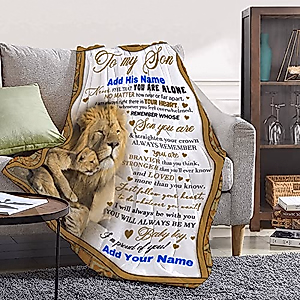 To my Son
Add His Name
Never feel that YOU ARE ALONE
NO MATTER how near or far apart,
I am always right there in YOUR HEART,
whenever you feel overwhelmed,
REMEMBER WHOSE
Son you are
& straighten your crown
ALWAYS REMEMBER
You are
BRAVER than you think,
STRONGER than you'll ever know
and LOVED
more than you know,
Just follow your heart,
I will always be with you
YOU WILL ALWAYS BE MY
Baby boy,
proud of you!
Add Your Name